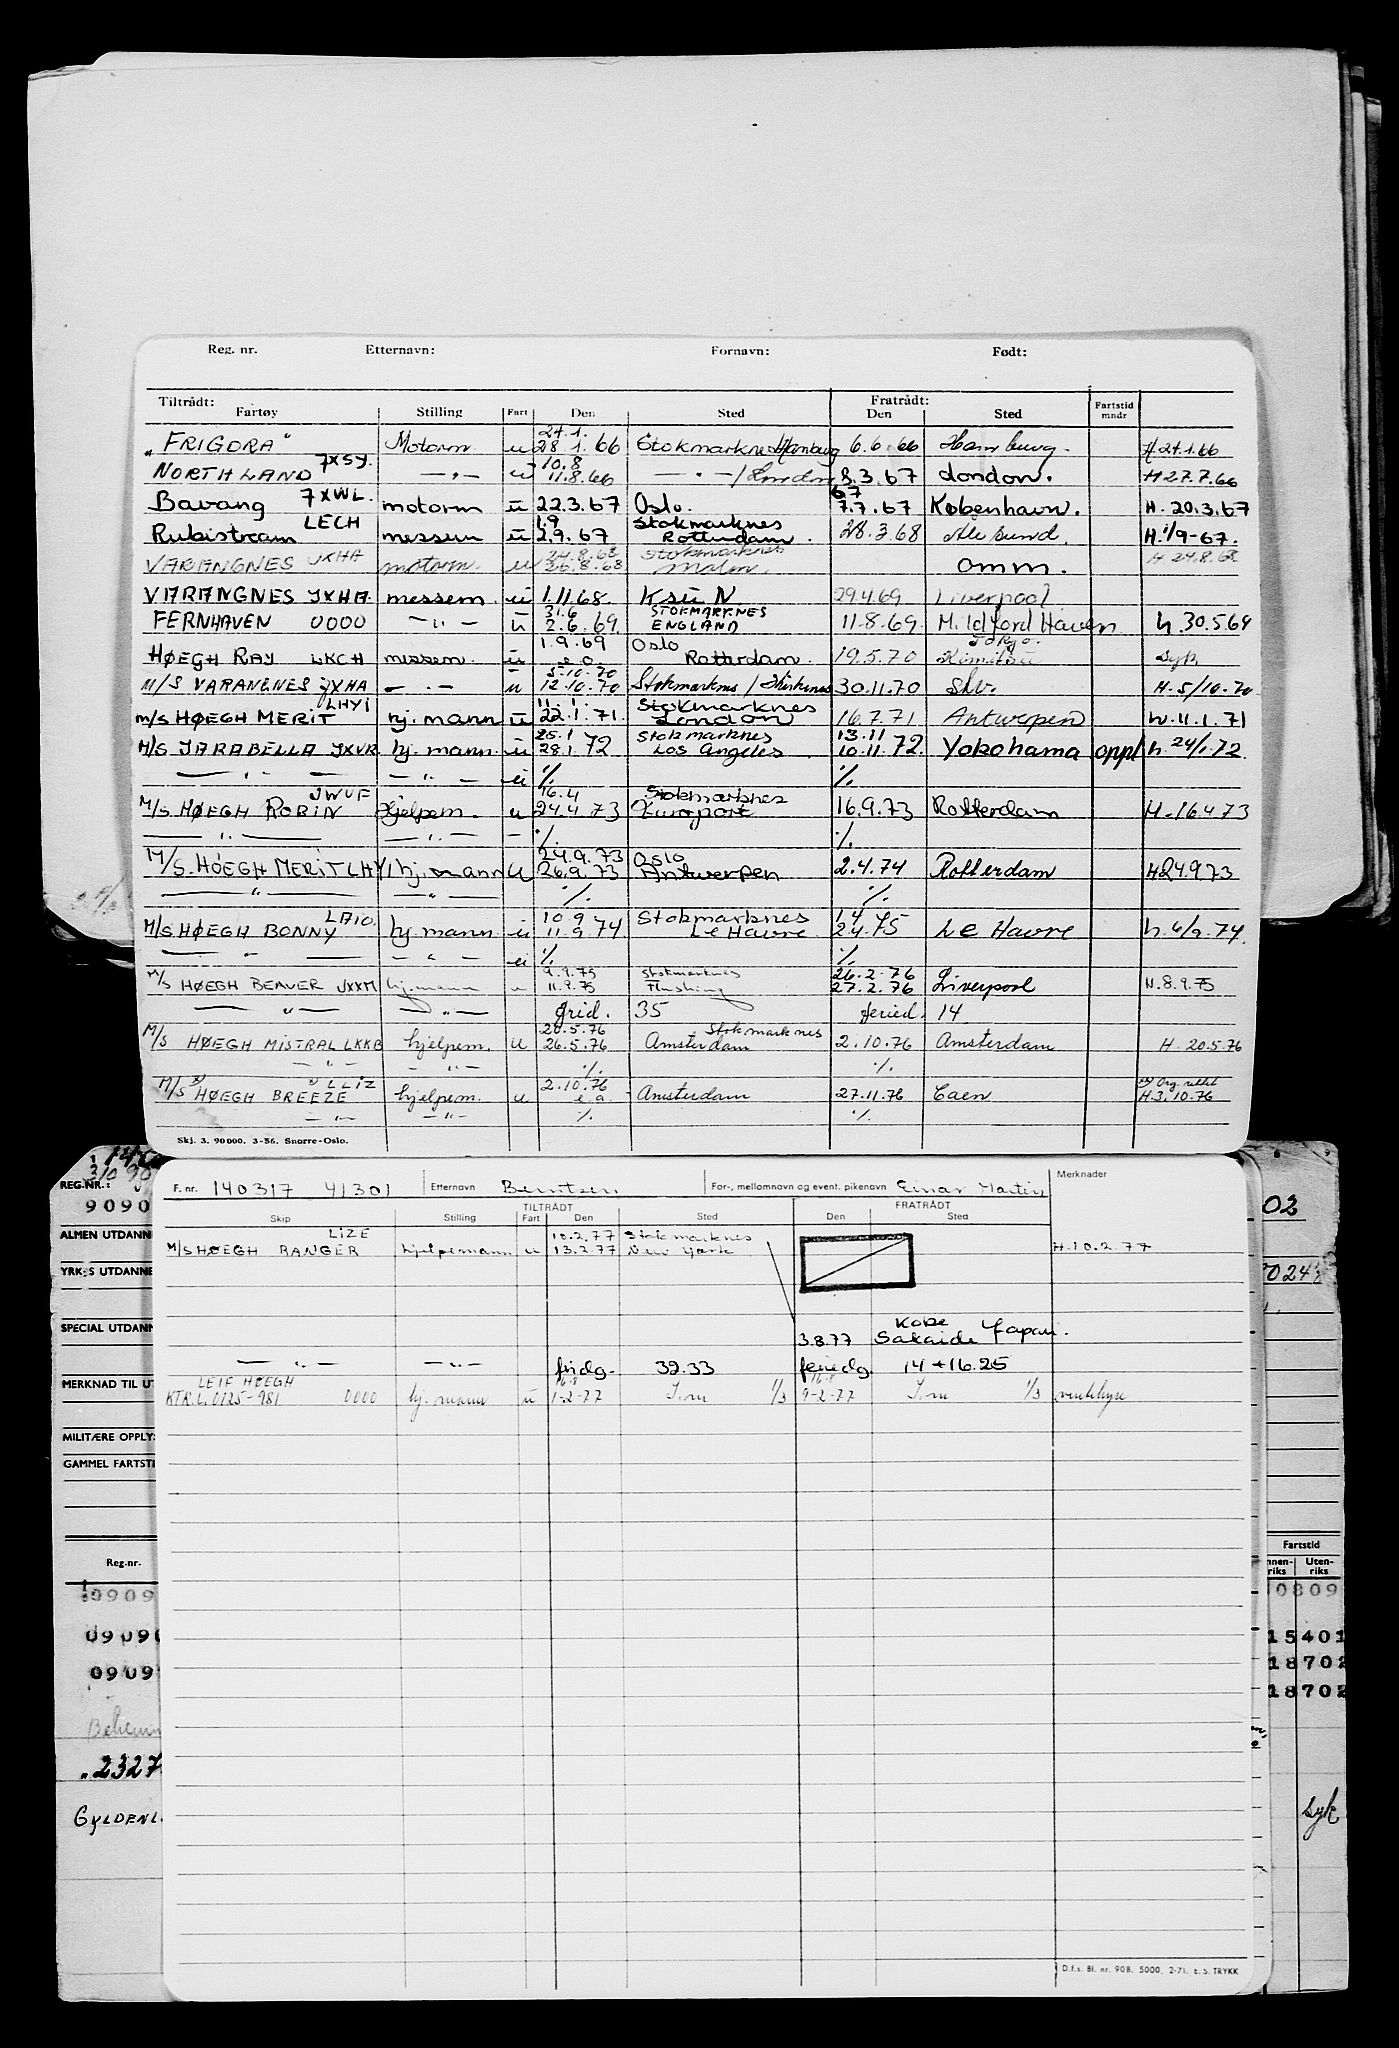 Reg. nr. Etternavn: Fornavn: Født:
Tiltrådt: Fratrådt:
Fartøy Stilling Fart Den Sted Den Sted Fartstid mndr
27.1.
"FRIGORA" Motorm u 28.1.66 Stokmarknes/Hamburg 6.6.66 Hamburg. H 27.1.66
7XSY. 10.8
NORTHLAND —"— u 11.8.66 —"—/London 8.3.67 London. H 27.7.66
7XWL. 67
Bavang motorm ū 22.3.67 Oslo. 7.7.67 København. H. 20.3.67
LECH 1.9 Stokmarknes
Rubistream messem ū 2.9.67 Rotterdam. 28.3.68 Ålesund. H. 1/9-67.
24.8.68 Stokmarknes
VARANGNES JXHA motorm. u 26.8.68 Omm. H 24.8.68
VARANGNES JXHA. messem. ū 1.11.68. Ksū N 29.4.69 Liverpool
31.6 STOKMARKNES
FERNHAVEN 0000 —"— ū 2.6.69. ENGLAND 11.8.69. Mildford Haven h. 30.5.69
1.9.69 Oslo Tokyo.
HØEGH RAY LKCH messem. ū e.o. Rotterdam. 19.5.70 Kimitsu Syk
5.10.70
M/S VARANGNES JXHA —"— u 12.10.70 Stokmarknes/Kirkenes 30.11.70 Skv. H. 5/10.70
LHYI 11.1. Stokmarknes
M/S HØEGH MERIT hj.mann ū 22.1.71. London 16.7.71 Antwerpen h. 11.1.71
25.1 Stokmarknes 13.11
M/S JARABELLA JXVR hj. mann. ū 28.1.72 Los Angeles 10.11.72. Yokohama oppl h. 24/1.72
—"— —"— ū % %
JWUF 16.4 Stokmarknes
M/S HØEGH ROBIN Hjelpem. u 24.4.73 Europort 16.9.73 Rotterdam H. 16.4.73
—"— —"— — % %
24.9.73 Oslo
M/S. HÖEGH MERIT LHYI hj.mann u 26.9.73 Antwerpen 2.4.74 Rotterdam H 24.9.73
—"— —"— % %
LAIO. 10.9 Stokmarknes 1.4
M/S HØEGH BONNY hj. mann. ū 11.9.74 Le Havre 2.4.75 Le Havre h. 6/9.74.
—"— —"— ū % %
9.9.75 Stokmarknes 26.2.76
M/S HØEGH BEAVER JXXM hj.mann u 11.9.75 Flushing 27.2.76 Liverpool H. 8.9.75
—"— —"— frid. 35 feried. 14
20.5.76 Stokmarknes
M/S HØEGH MISTRAL LKKB hjelpem. u 26.5.76 Amsterdam 2.10.76 Amsterdam H. 20.5.76
—"— —"— % %
x) x) LLIZ 2.10.76 x) Org. rettet
M/S HØEGH BREEZE hjelpem. u e.o. Amsterdam 27.11.76 Caen H. 3.10.76
—"— —"— % %
Skj. 3. 90000. 3-56. Snorre-Oslo.
REG.NR.: 9090
ALMEN UTDANN
YRK;S UTDANNE
SPECIAL UTDANN
MERKNAD TIL UT
MILITÆRE OPPLYS
GAMMEL FARTSTI
Reg.nr.
0909
0909
0909
"2327
GYLDENL
02
Fartstid
nnen-riks Uten-riks
0809
15401
18702
18702
Syk
F. nr. 140317 41301 Etternavn Berntsen For-, mellomnavn og event. pikenavn Einar Martin Merknader
TILTRÅDT FRATRÅDT
Skip Stilling Fart Den Sted Den Sted
LIZE 10.2.77 Stokmarknes
M/S HØEGH RANGER hjelpemann u 13.2.77 New York H. 10.2.77
Kobe
3.8.77 Sakaide Japan.
—"— —"— fridg. 32.33 feriedg. 14 + 16.25
LEIF HØEGH 16.8 16.8
KTR.L. 0125-981 0000 hj. mann ū 1-2-77 S.m 1/3 9-2-77 S.m 1/3 ventehyre
D.f.s. Bl. nr. 908. 5000. 2-71. E.S. TRYKK